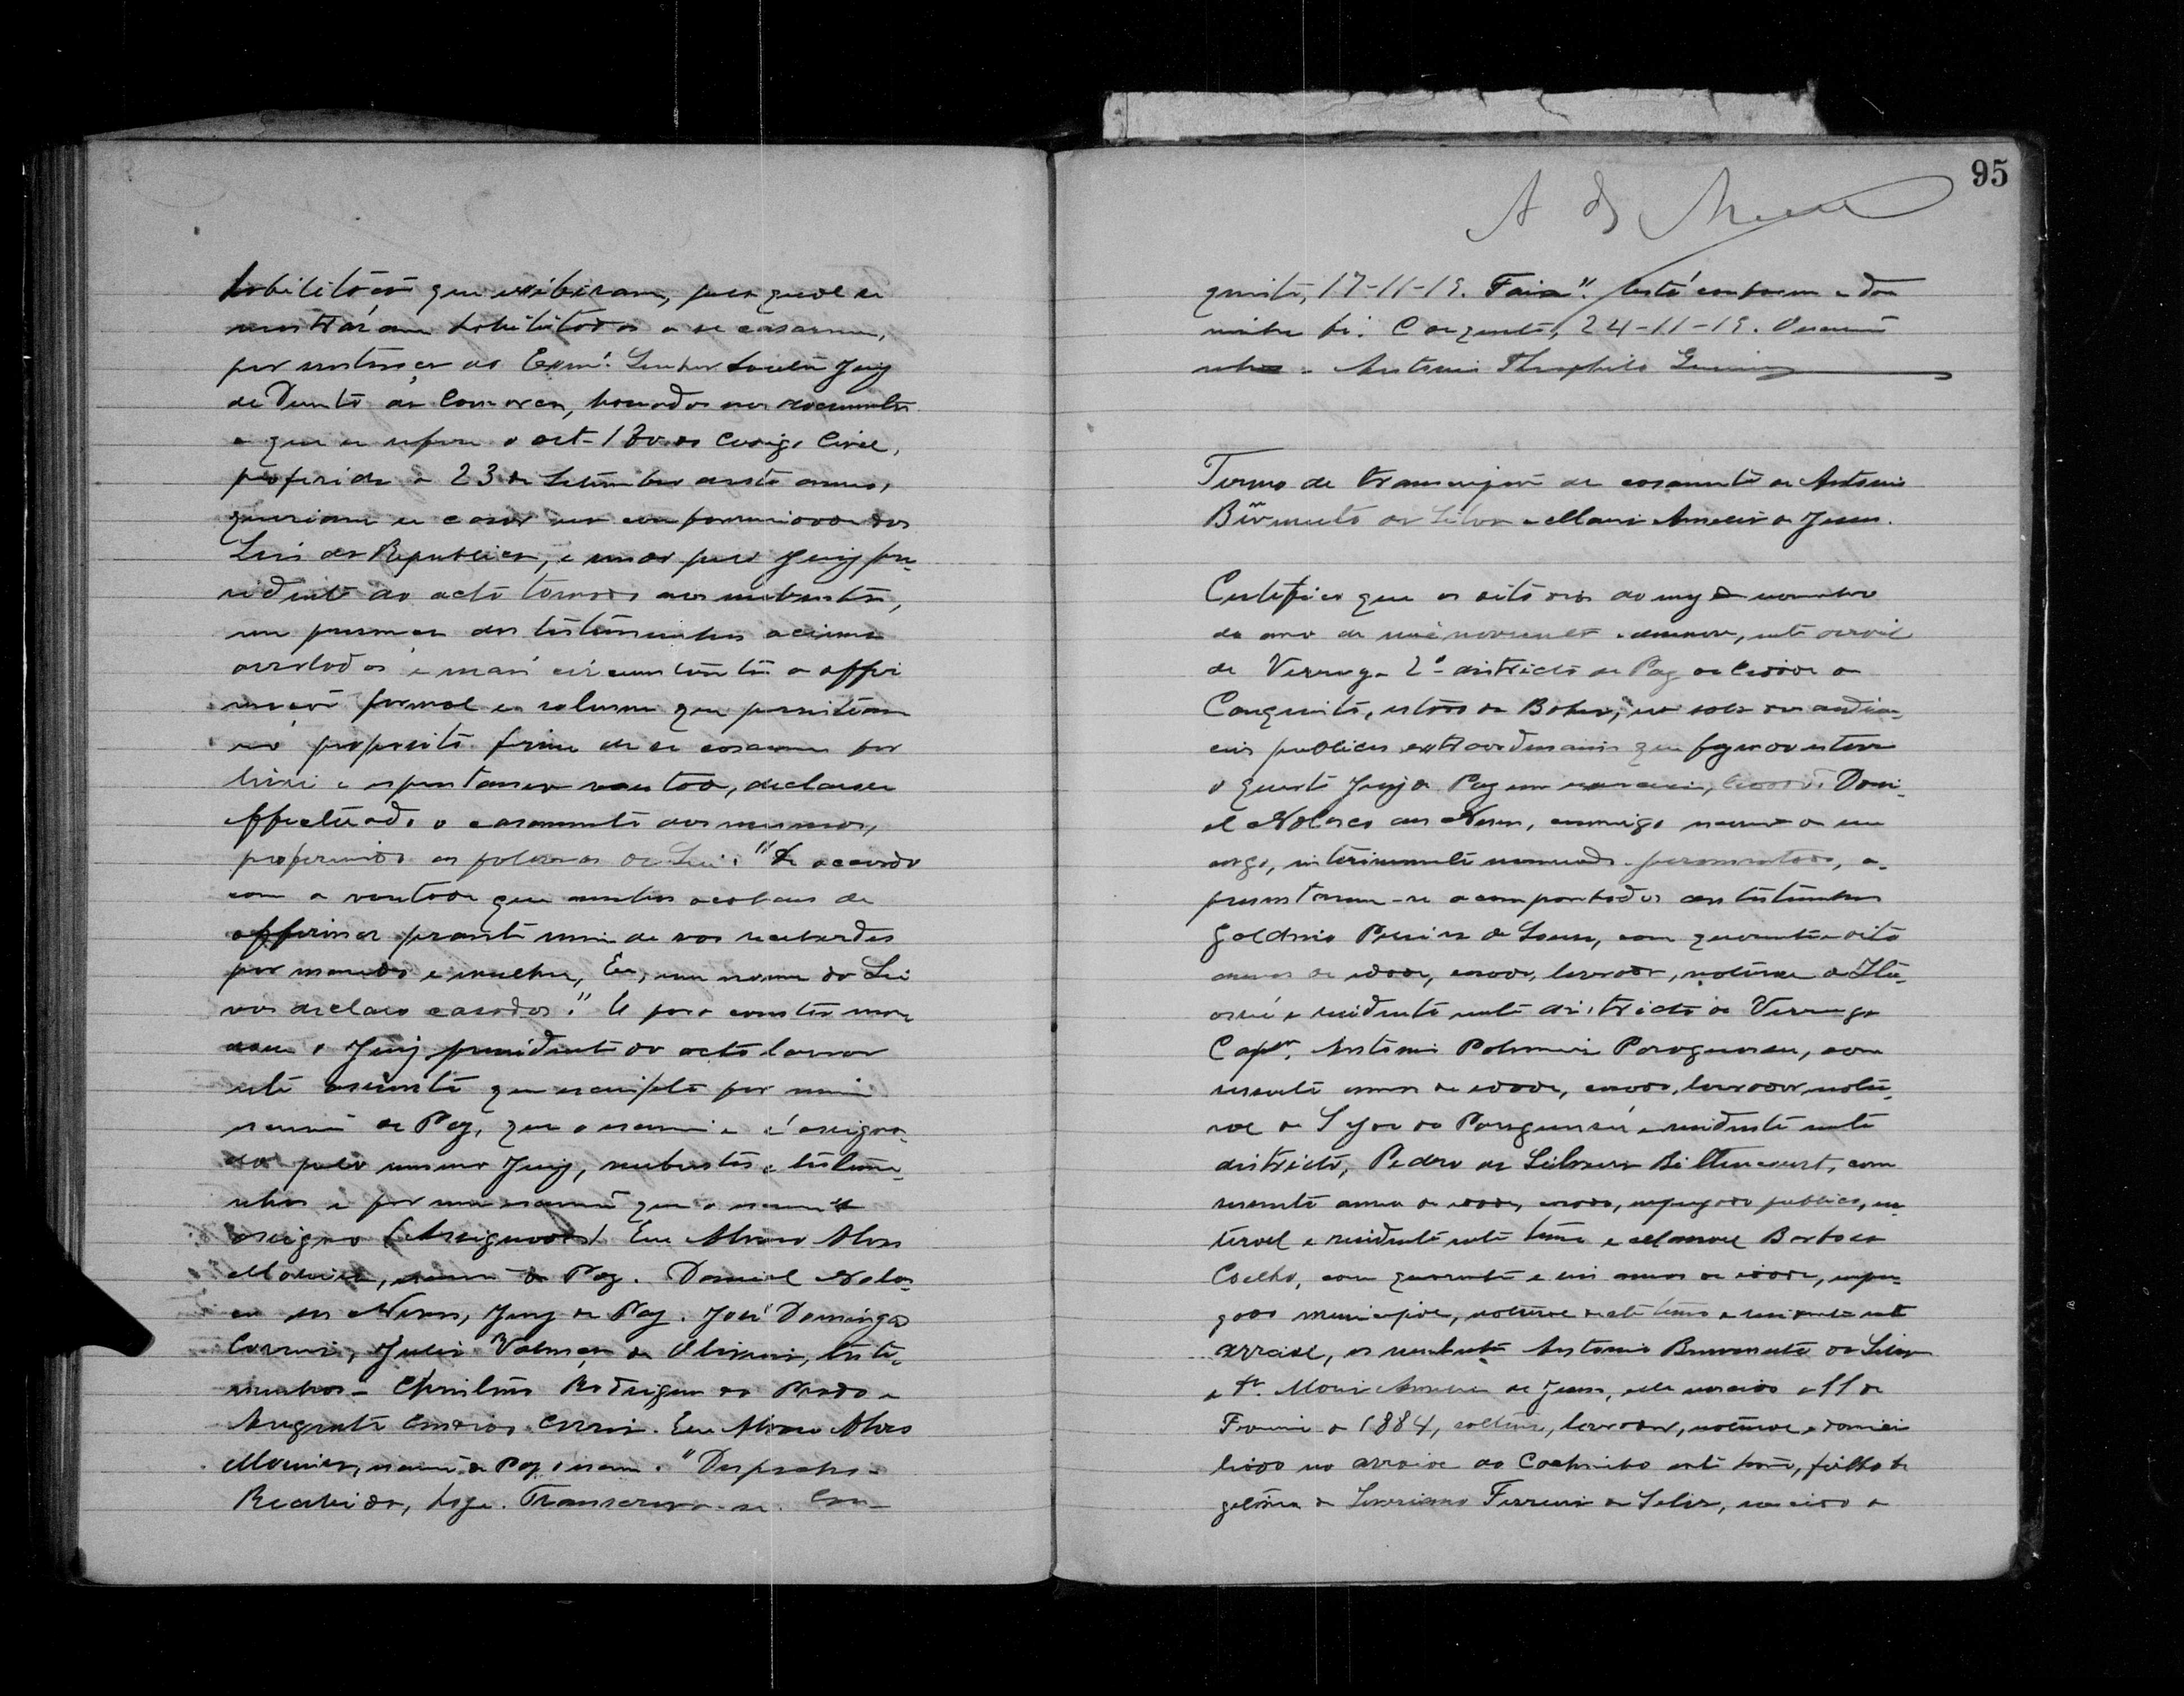 habilitação que exibiram, pela qual se
mostráram habilitados a se casarem,
por sentença do Exmo. Senhor Doutor Juiz
de Direito da Comarca, baseado nos documentos
a que se refere o art. 180 do Codigo Civil,
proferida a 23 de Setembro deste anno,
queriam se casar na conformidade das
Leis da Republica, e uma vez pelo Juiz pre-
sidente do acto tomado aos nubentes,
em presença das testemunhas acima
arroladas e mais circunstantes a affir
mação formal e solemne que persistiam
no proposito firme de se casarem por
livre e espontanea vontade, declarou
effectuado o casamento dos mesmos,
proferindo as palavras da Lei: "De accordo
com a vontade que ambos acabaes de
affirmar perante mim de vos receberdes
por marido e mulher, Eu, em nome da Lei
vos declaro casados." E para constar man
dou o Juiz presidente do acto lavrar
este assento que escripto por mim
escrivão de Paz, que o escrevi e é assigna-
do pelo mesmo Juiz, nubentes e testemu-
nhas e por mim escrivão que o escrevi e
assigno (Assignados) Eu Alvaro Alves
Moreira, escrivão de Paz. Daniel Nolas-
co das Neves, Juiz de Paz. José Domingos
Correia, Julia de Oliveira, teste-
munhas - Rodrigues do Prado e
Augusto. Eu Alvaro Alves
Moreira, escrivão de Paz o escrevi. "Despacho -
Recebido, hoje. Transcreva-se. Con-
95
quista, 17-11-19. Faria". Está conforme e dou
minha fé. Conquista, 24-11-19. O escrivão
Antonio Theophilo
Termo de transcripção de casamento de Antonio
Bemvenuto da Silva e Maria Amelia de Jesus.
Certifico que os oito dias do mez de novembro
do anno de mil novecentos e dezenove, neste arraial
de Verruga 2º districto de Paz da Cidade da
Conquista, estado da Bahia, na sala das audien-
cias publicas extraordinarias que fazendo estava
o quarto Juiz de Paz em exercicio, cidadão Dani-
el Nolasco das Neves, commigo escrivão de seu
cargo, interinamente nomeado e juramentado, a-
presentaram-se acompanhados das testemunhas
Galdino Pereira de Souza, com quarenta e oito
annos de idade, casado, lavrador, natural de
e residente neste districto de Verruga
Capm. Antonio Paraguassu, com
sessenta annos de idade, casado, lavrador natu-
ral de do Paraguassú e residente neste
districto, Pedro de Bittencourt, com
sessenta annos de idade, casado, empregado publico, na-
tural e residente neste termo e Manoel Barbosa
Coelho, com quarenta e seis annos de idade, empre-
gado municipal, natural deste termo e residente neste
arraial, os nubentes Antonio Bemvenuto da Silva
e D. Maria Amelia de Jesus, elle nascido a 11 de
Fevereiro de 1884, solteiro, lavrador, natural e domici
liado no arraial do Cachimbo neste termo, filho le
gitimo de Ferreira da Silva, nascido a